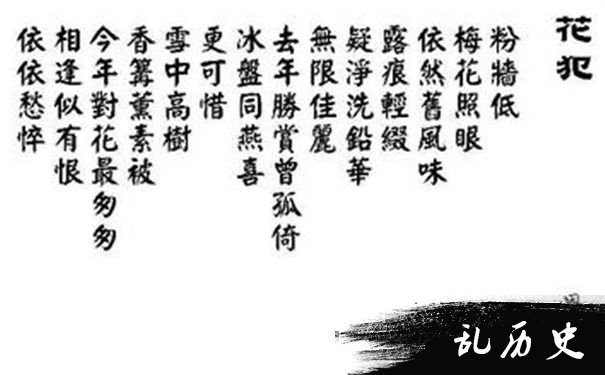 花犯
粉牆低
梅花照眼
依然舊風味
露痕輕綴
疑淨洗鉛華
無限佳麗
去年勝賞曾孤倚
冰盤同燕喜
更可惜
雪中高樹
香篝薰素被
今年對花最匆匆
相逢似有恨
依依愁悴
乱历史